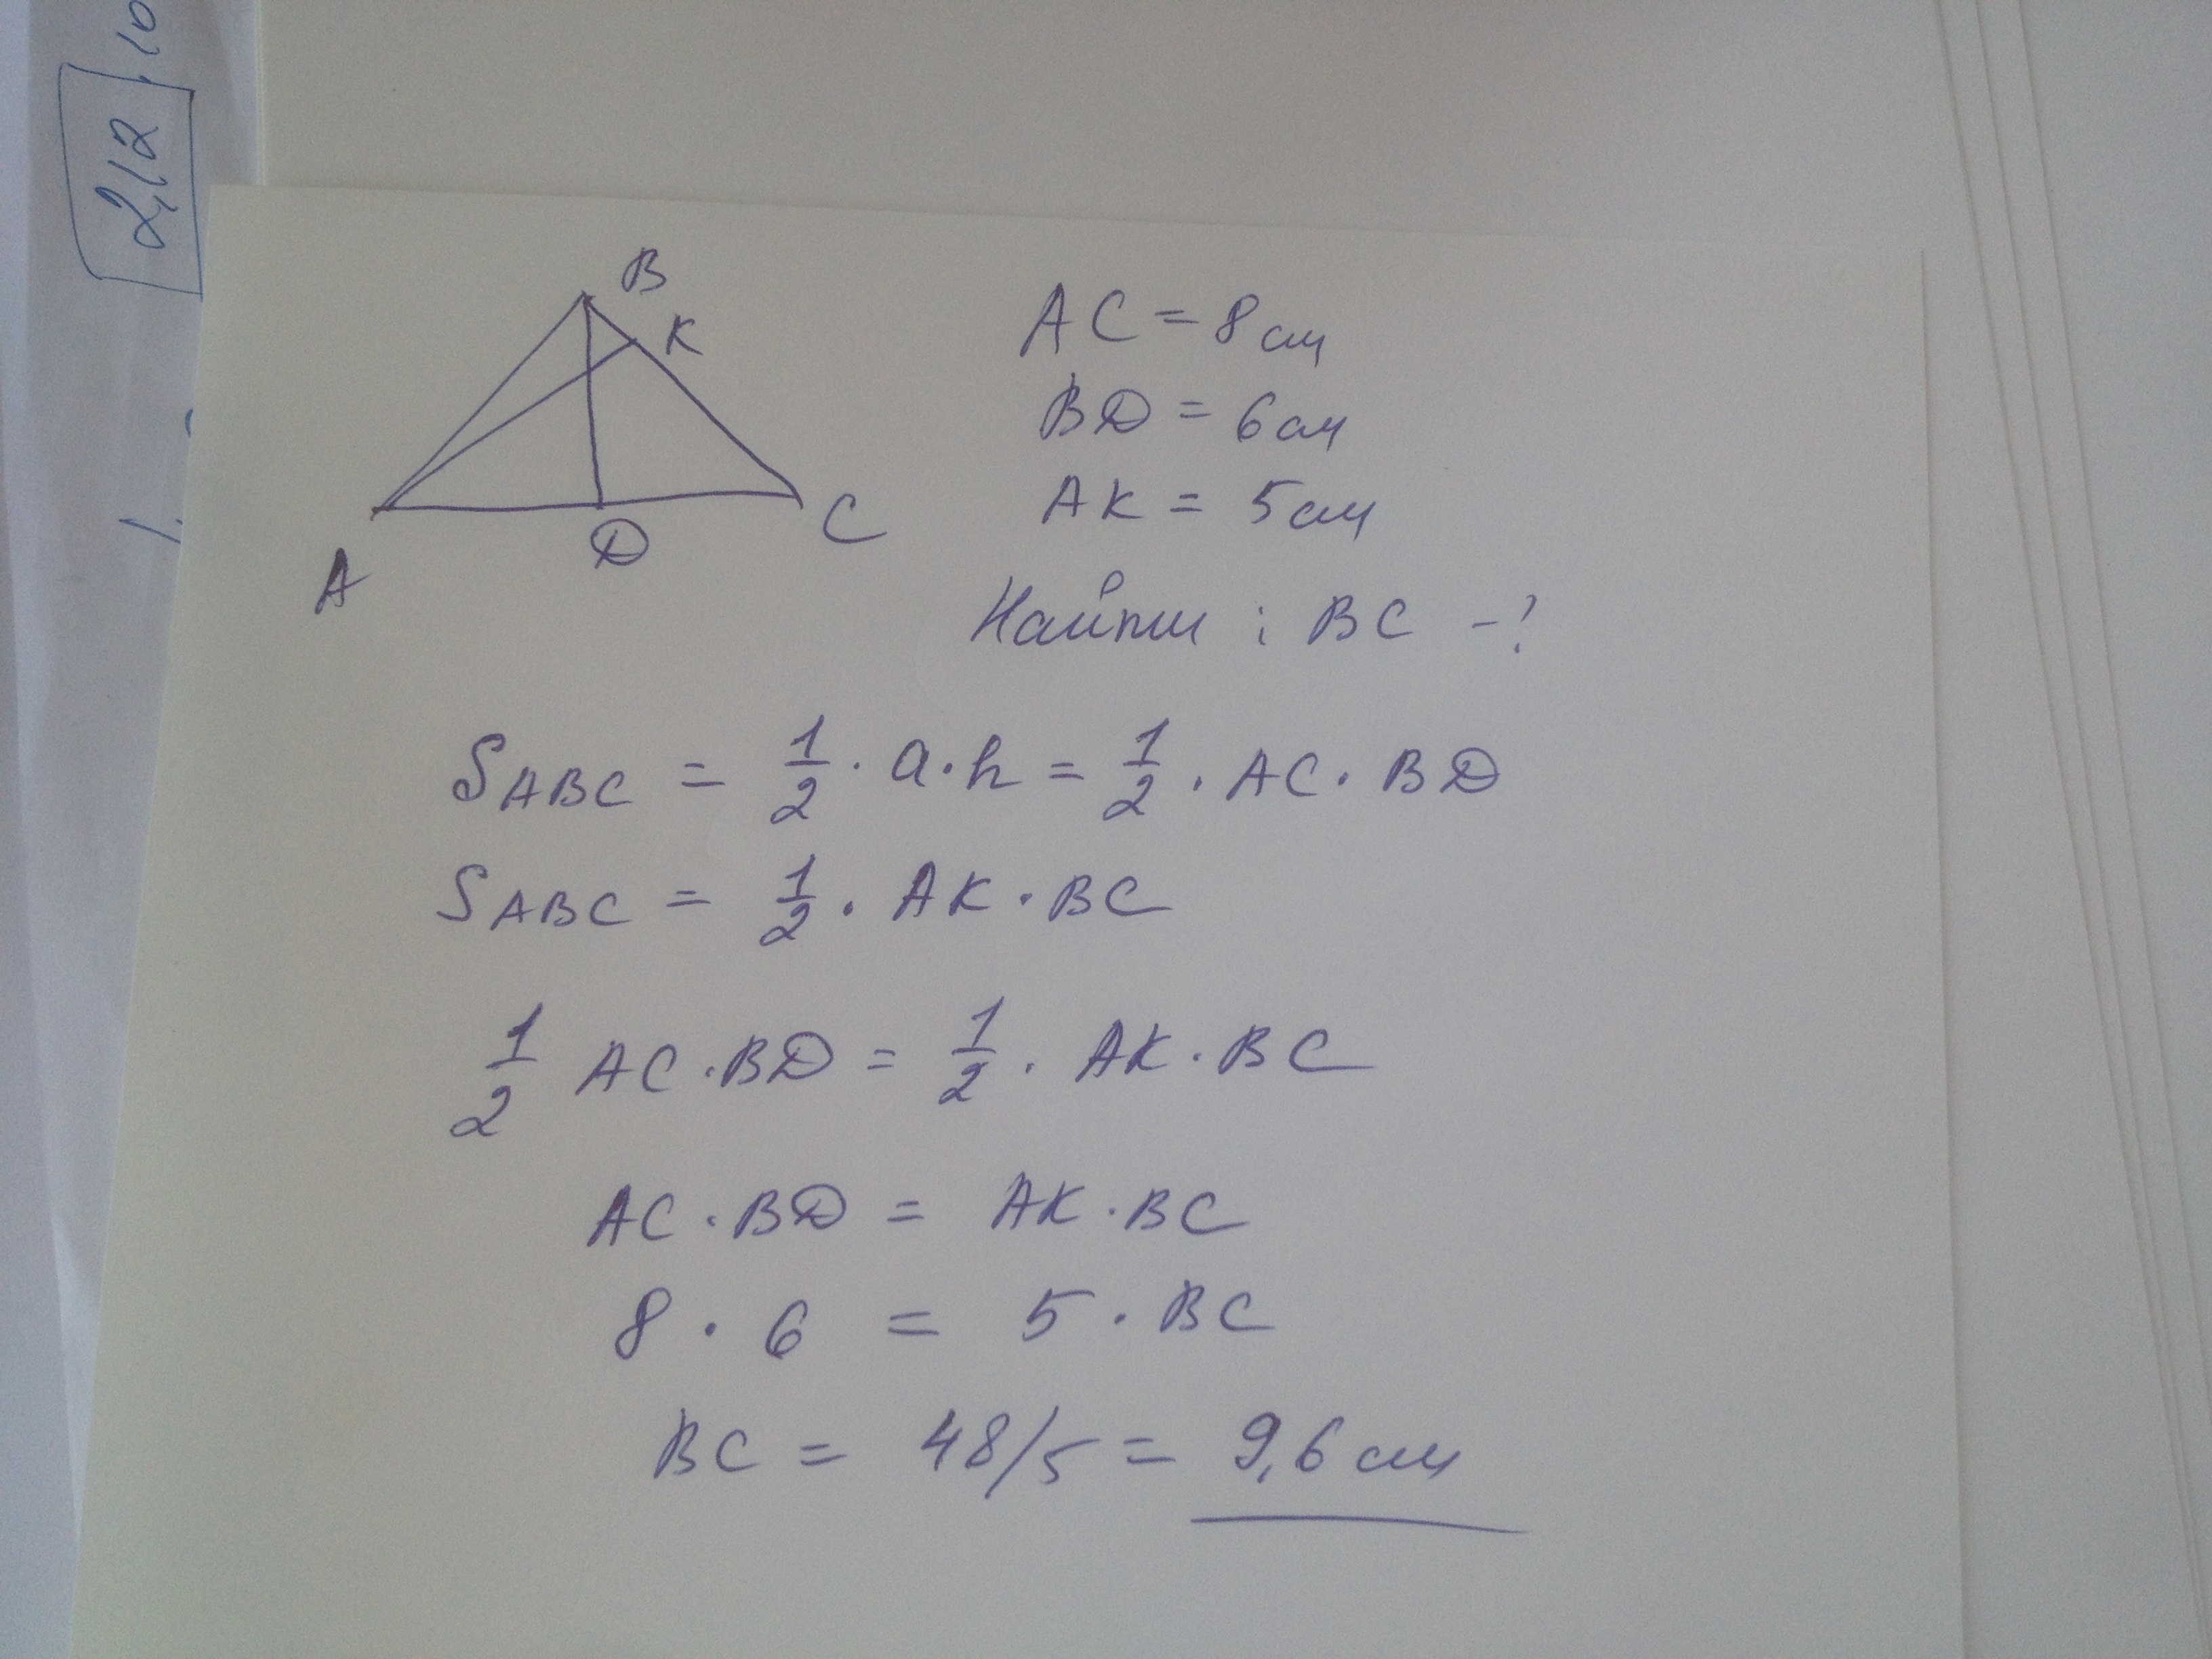 2,12 ,10
B
K
A
D
C
AC = 8 см
BD = 6 см
AK = 5 см
Найти : BC - ?
S ABC = 1/2 · a · h = 1/2 · AC · BD
S ABC = 1/2 · AK · BC
1/2 AC · BD = 1/2 · AK · BC
AC · BD = AK · BC
8 · 6 = 5 · BC
BC = 48/5 = 9,6 см